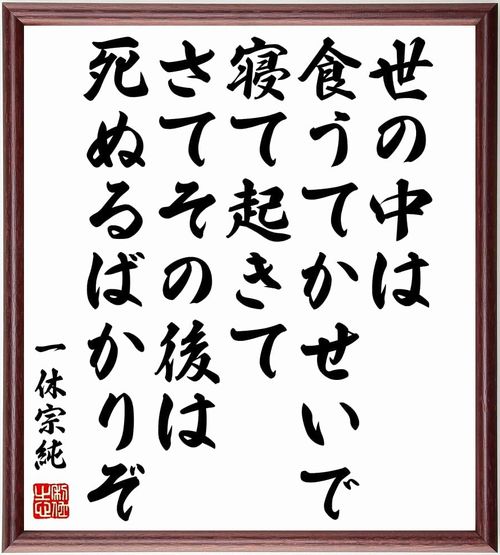 世の中は
食うてかせいで
寝て起きて
さてその後は
死ぬるばかりぞ
一休宗純